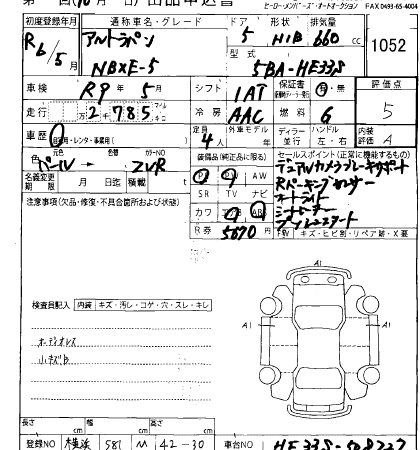 ヒーローメンバーズ・オートオークション FAX 0493-65-4004
初度登録年月 通称車名・グレード ドア 形状 排気量
R6/5月 アルトラパン 5 H/B 660 cc 1052
NBXE-5 型式 5BA-HE33S
車検 R9年5月 シフト 1AT 保証書 有・無 評価点
走行 2万2785 マイル キロ 冷房 AAC 燃料 G 5
車歴 自家用・レンタ・事業用( ) 定員 4人 外車モデル ディーラー 並行 ハンドル 左・右 内装評価 A
色 元色 パール 色替 カラーNO ZVR
装備品(純正品に限る) セールスポイント(正常に機能するもの)
名義変更期限 月 日迄 積載 t
PS PW AW デュアルカメラブレーキサポート
SR TV ナビ Rパーキングセンサー
注意事項(欠品・修復・不具合箇所および状態) オートライト
カワ エアB ABS シートヒーター
R券 5670円 プッシュスタート
キズ・ヒビ割・リペア跡・X要
検査員記入 内装 キズ・汚レ・コゲ・穴・スレ・キレ
オーディオレス
小キズ有
A1
A1
A1
長さ cm 幅 cm 高さ cm
登録NO 横浜 581 ム 42-30 車台NO